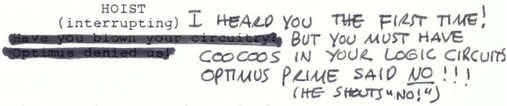 HOIST
(interrupting) I HEARD YOU THE FIRST TIME!
Have you blown your circuitry? BUT YOU MUST HAVE
Optimus denied us! COOCOOS IN YOUR LOGIC CIRCUITS
OPTIMUS PRIME SAID NO!!!
(HE SHOUTS "NO!")